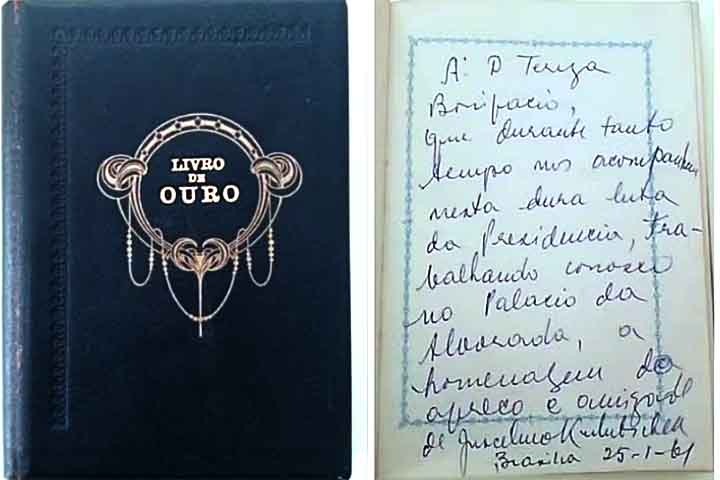 LIVRO
DE
OURO
A: D Tereza
Bonifacio,
que durante tanto
tempo nos acompanhou
nesta dura luta
da Presidencia, Tra-
balhando conosco
no Palacio da
Alvorada, a
homenagem do
apreço e amizade
de Juscelino Kubitschek
Brasilia 25-1-61